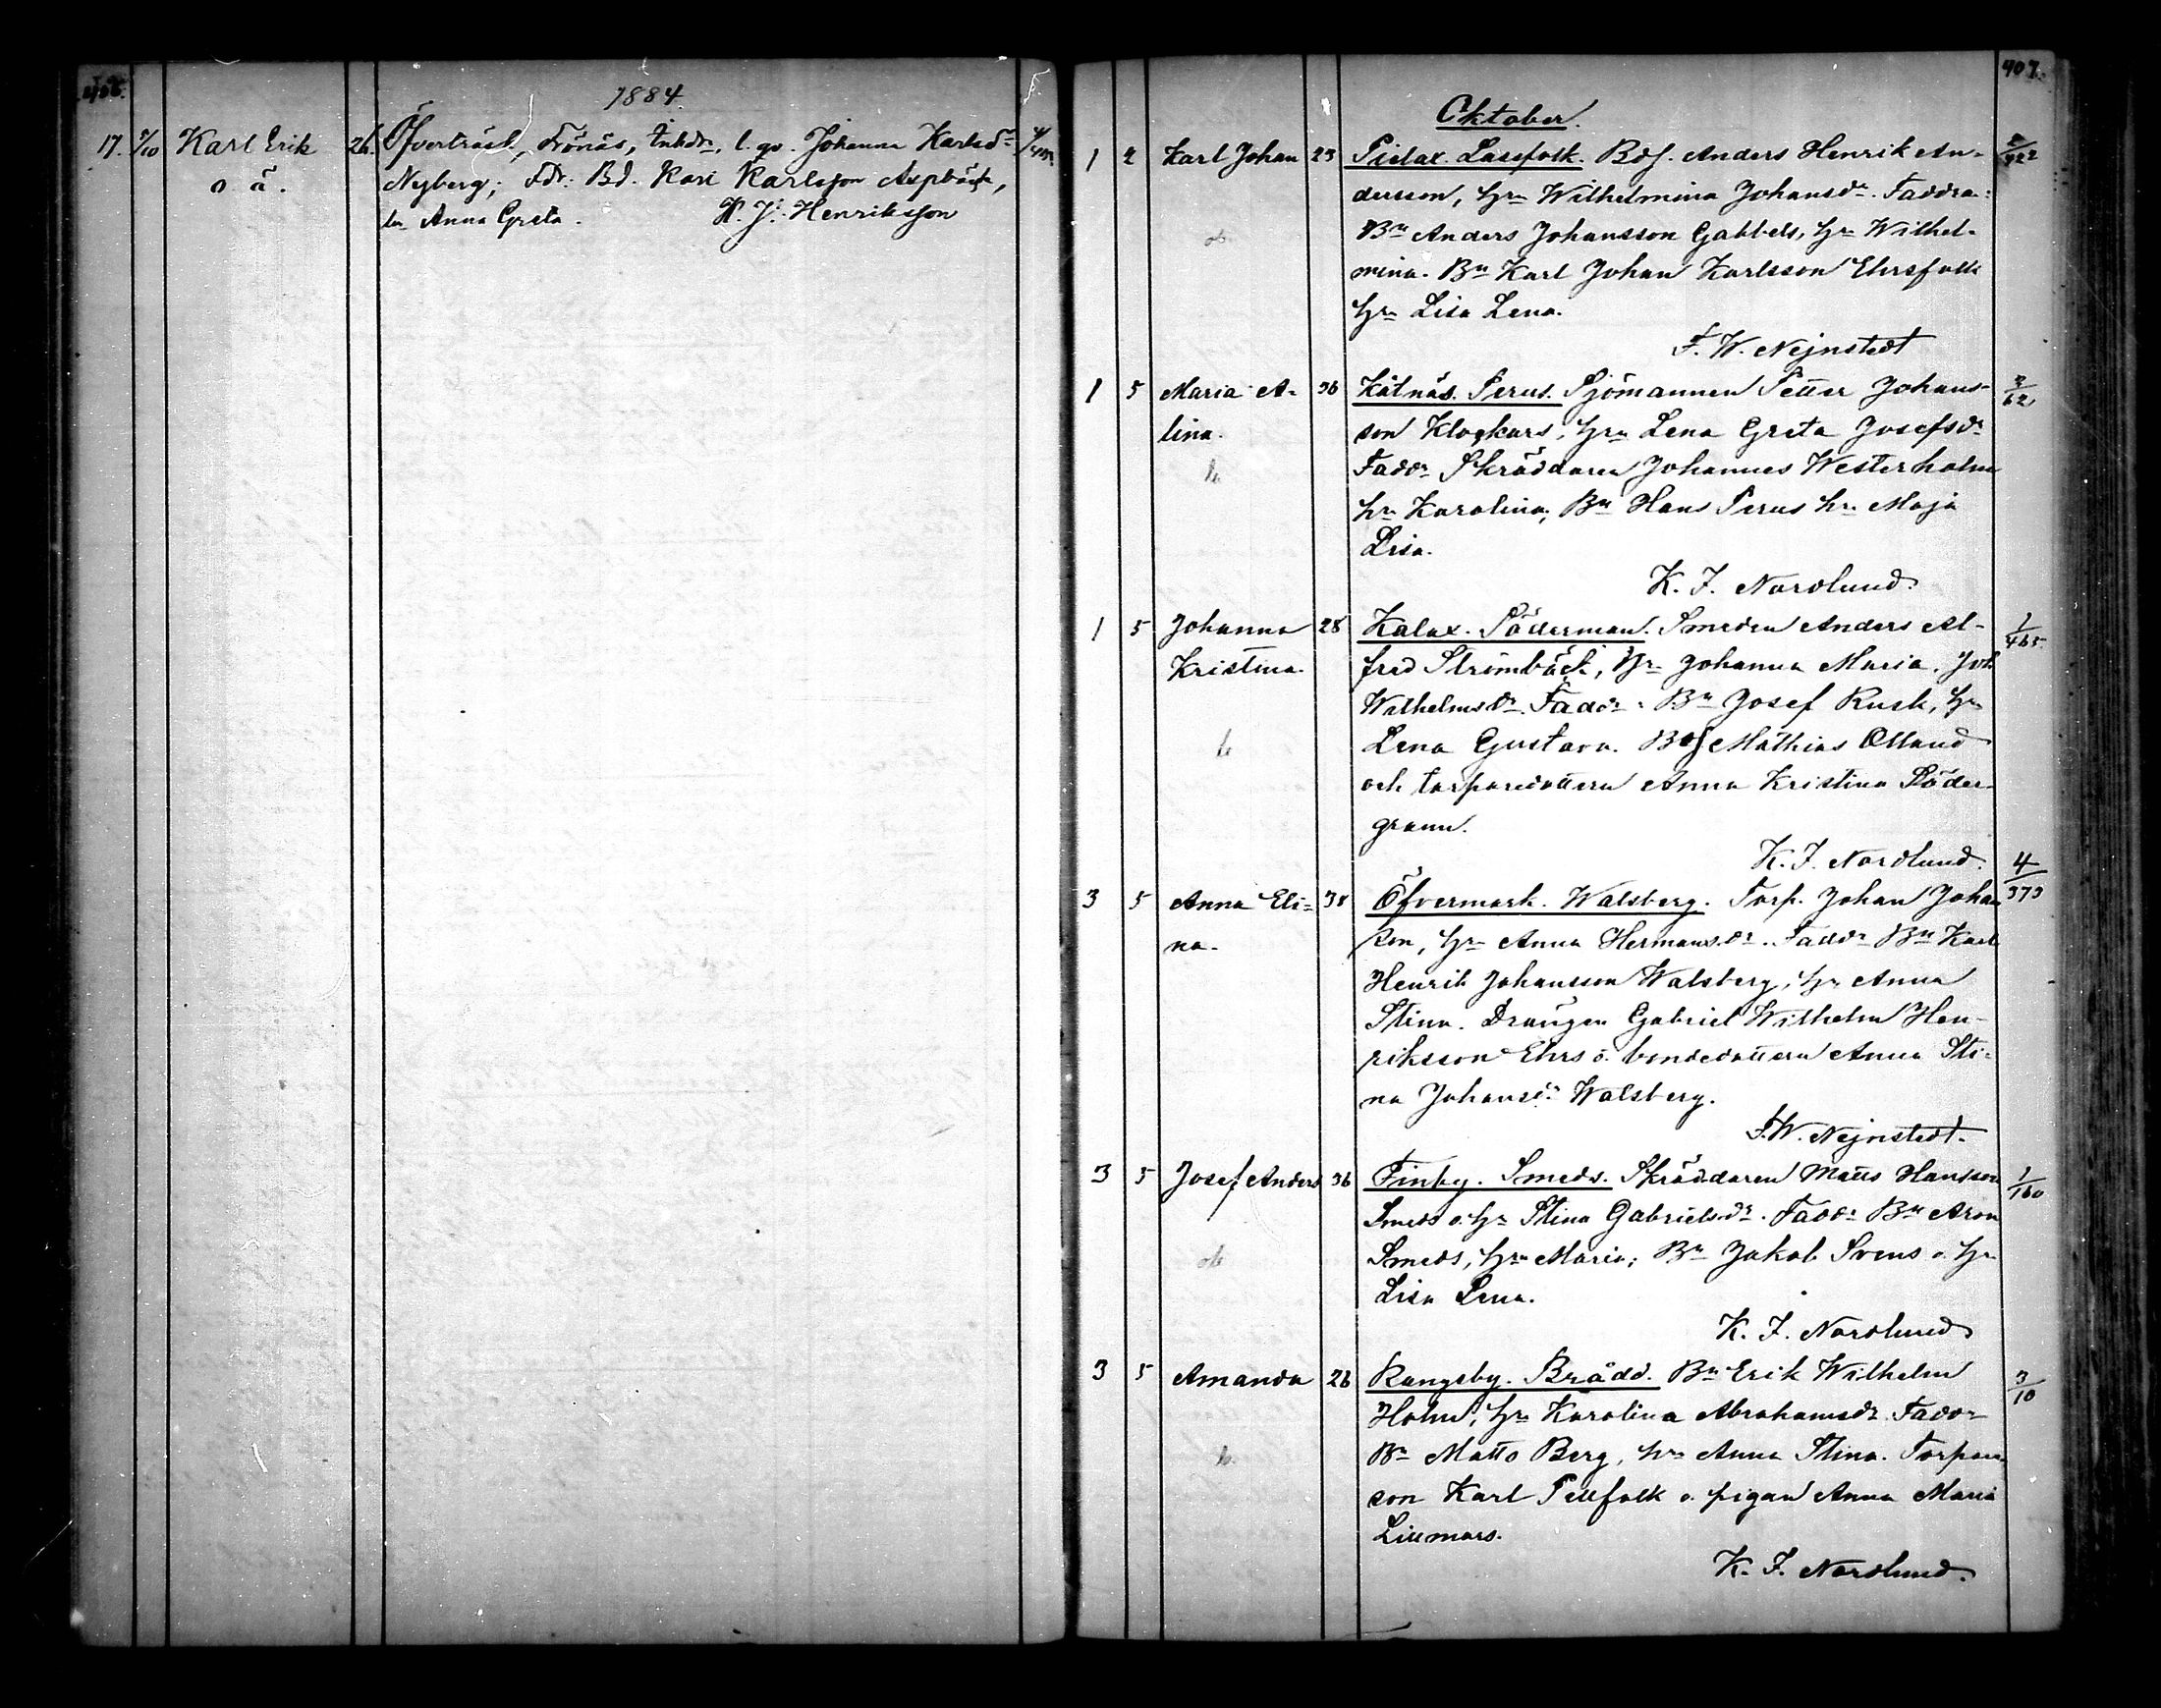 406.
1884
17. 7/10 Karl Erik 26. Öfverträsk, Frönäs, Inhdr, l. qv. Johanna Karlsdr 4/
o ä. Nyberg; Fdr: Bd. Karl Karlsson Aspbäck,
Anna Greta. K. J. Henriksson
407.
Oktober.
1 2 Karl Johan 23 Pielax. Lassfolk. Bdss. Anders Henrik An- 2/422
dersson, hn Wilhelmina Johansdr. Faddra:
Bn Anders Johansson Gabbels, hn Wilhel-
mina. Bn Karl Johan Karlsson Ehrsfolk
hn Lisa Lena.
F. W. Nejnstedt
1 5 Maria A- 36 Kåtnäs. Perus. Sjömannen Petter Johans- 3/62
lina. son Klockars, hn Lena Greta Josefsdr
Faddr Skräddaren Johannes Westerholm
hn Karolina; Bn Hans Perus hn Maja
Lisa.
K. J. Nordlund.
1 5 Johanna 28 Kalax. Söderman. Smeden Anders Al- 1/465
Kristina. fred Strömbäck, hn Johanna Maria. Joh
Wilhelmsdr. Faddr: Bn Josef Rusk, hn
Lena Gustava. Bdss Mathias Ollund
och torparedottern Anna Kristina Söder-
grann.
K. J. Nordlund.
3 5 Anna Eli- 38 Öfvermark. Walsberg. Torp. Johan Johan 4/373
na. son, hn Anna Hermansdr. Faddr Bn Karl
Henrik Johansson Walsberg, hn Anna
Stina. Drängen Gabriel Wilhelm Hen-
riksson Ehrs o. bondedottern Anna Sti-
na Johansdr Walsberg.
F. W. Nejnstedt.
3 5 Josef Anders 36 Finby. Smeds. Skräddaren Matts Hansson 1/160
Smeds o. hn Stina Gabrielsdr. Faddr Bn Aron
Smeds, hn Maria; Bn Jakob Svens o. hn
Lisa Lena.
K. J. Nordlund
3 5 Amanda 26 Rangsby. Brådd. Bn Erik Wilhelm 3/10
Holm, hn Karolina Abrahamsdr. Faddr
Bn Matts Berg, hn Anna Stina. Torpare-
son Karl Pellfolk o. pigan Anna Maria
Lillmars.
K. J. Nordlund.